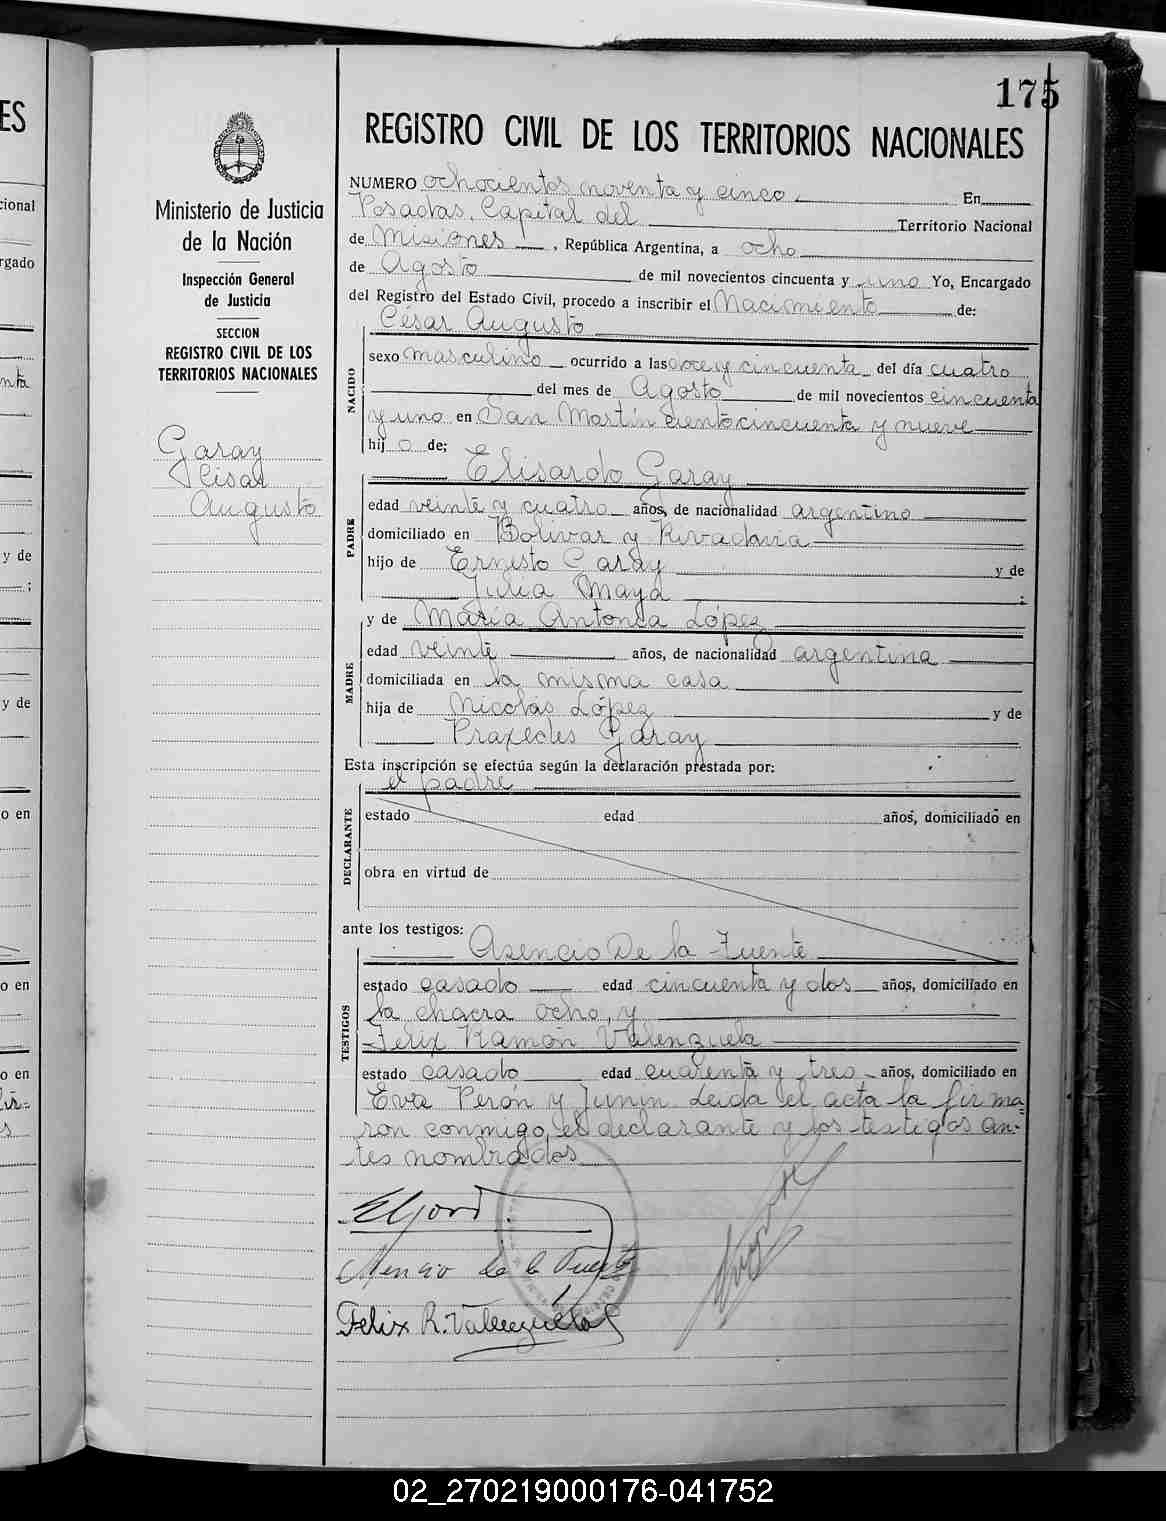 175
REGISTRO CIVIL DE LOS TERRITORIOS NACIONALES
Ministerio de Justicia
de la Nación
Inspección General
de Justicia
SECCION
REGISTRO CIVIL DE LOS
TERRITORIOS NACIONALES
Garay
César
Augusto
NUMERO ochocientos noventa y cinco. En
Posadas, Capital del Territorio Nacional
de Misiones, República Argentina, a ocho
de Agosto de mil novecientos cincuenta y uno Yo, Encargado
del Registro del Estado Civil, procedo a inscribir el Nacimiento de:
César Augusto
NACIDO
sexo masculino ocurrido a las doce y cincuenta del día cuatro
del mes de Agosto de mil novecientos cincuenta
y uno en San Martín ciento cincuenta y nueve
hijo de;
Elisardo Garay
PADRE
edad veinte y cuatro años, de nacionalidad argentino
domiciliado en Bolívar y Rivadavia
hijo de Ernesto Garay y de
Julia Maya ;
y de María Antonia López
MADRE
edad veinte años, de nacionalidad argentina
domiciliada en la misma casa
hija de Nicolás López y de
Praxedes Garay
Esta inscripción se efectúa según la declaración prestada por:
el padre
DECLARANTE
estado edad años, domiciliado en
obra en virtud de
ante los testigos:
Asencio De la Fuente
TESTIGOS
estado casado edad cincuenta y dos años, domiciliado en
la chacra ocho, y
Félix Ramón Valenzuela
estado casado edad cuarenta y tres años, domiciliado en
Eva Perón y Junín. Leida el acta la firma=
ron conmigo, el declarante y los testigos an-
tes nombrados
Asencio de la Fuente
Felix R. Valenzuela
ES
cional
rgado
nta
y de
;
y de
o en
o en
o en
02_270219000176-041752